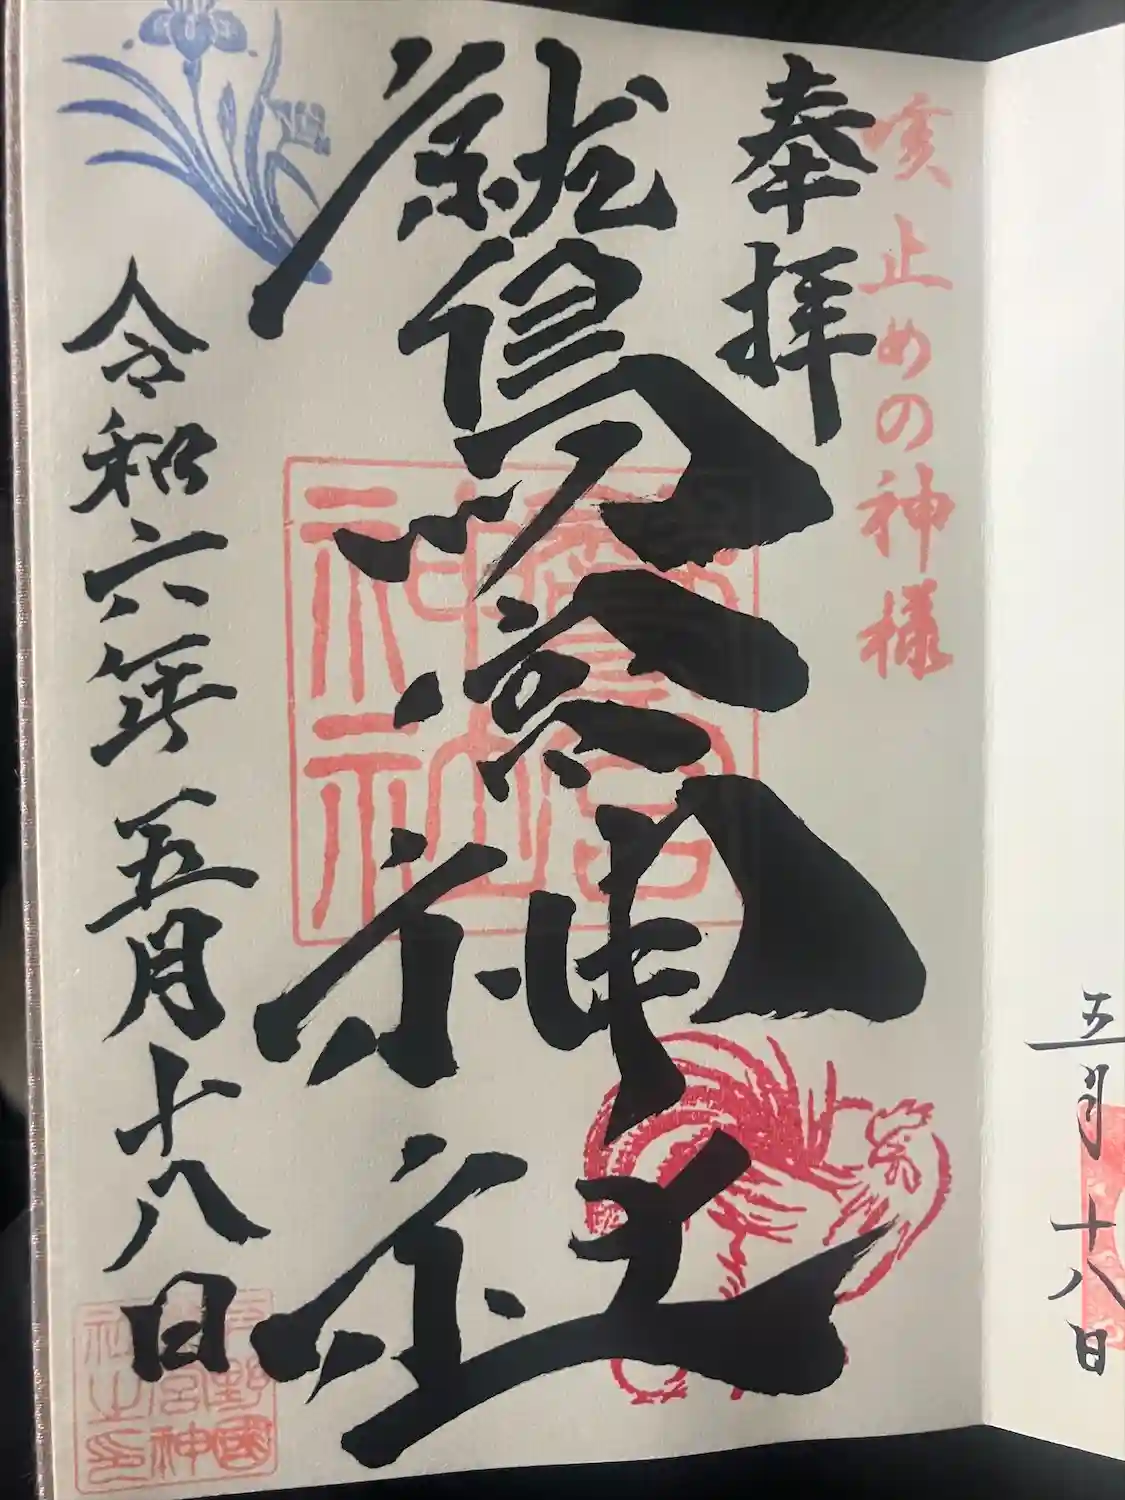 五月十八日
咳止めの神様
奉拝
鷲宮神社
鷲宮
神社
令和六年五月十八日
下野國
鷲宮神
社之印